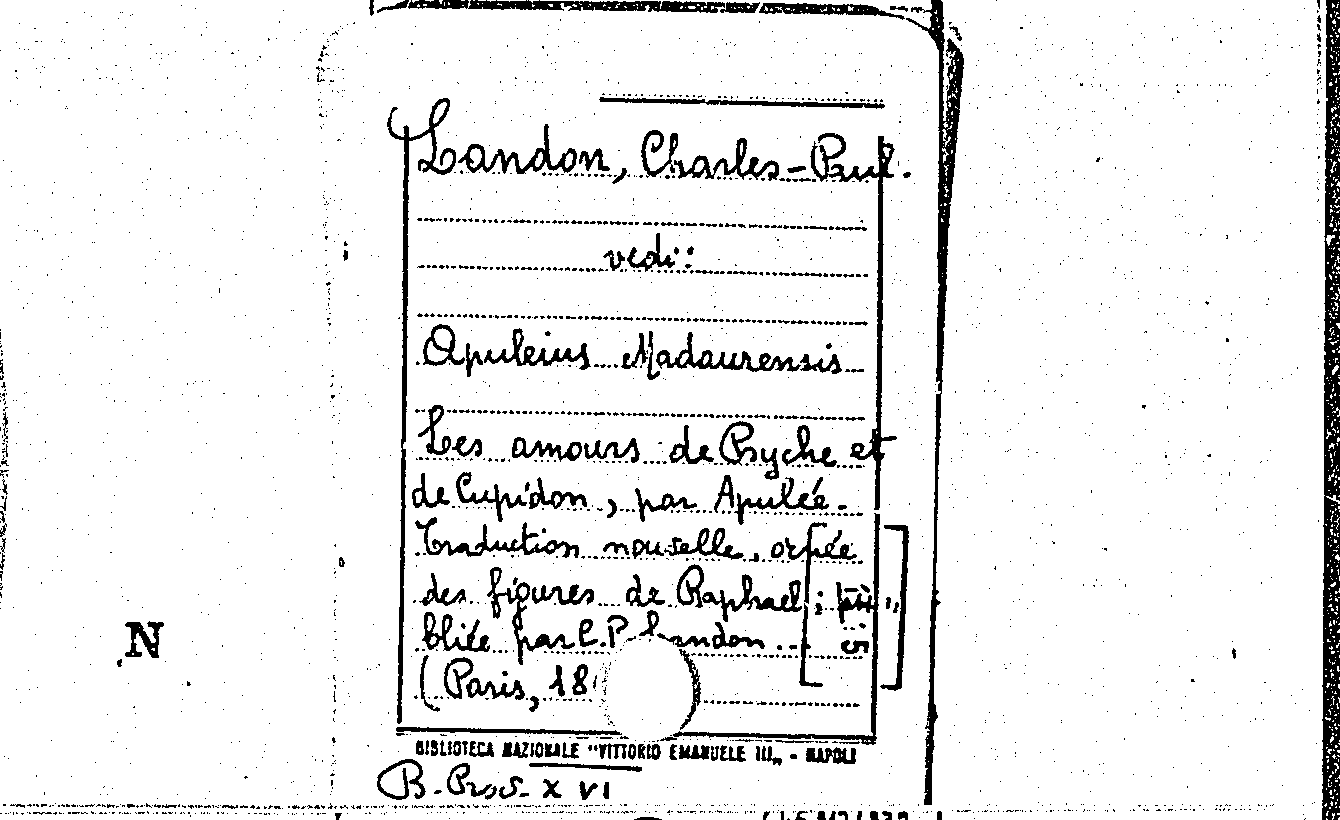 Landon, Charles-Paul.
vedi:
Apuleius Madaurensis
Les amours de Psyche et
de Cupidon, par Apulée.
Traduction nouvelle, ornée
des figures de Raphael; pu
bliée par C.P. Landon...
(Paris, 18
BIBLIOTECA NAZIONALE "VITTORIO EMANUELE III" - NAPOLI
B. Prov. X VI
N